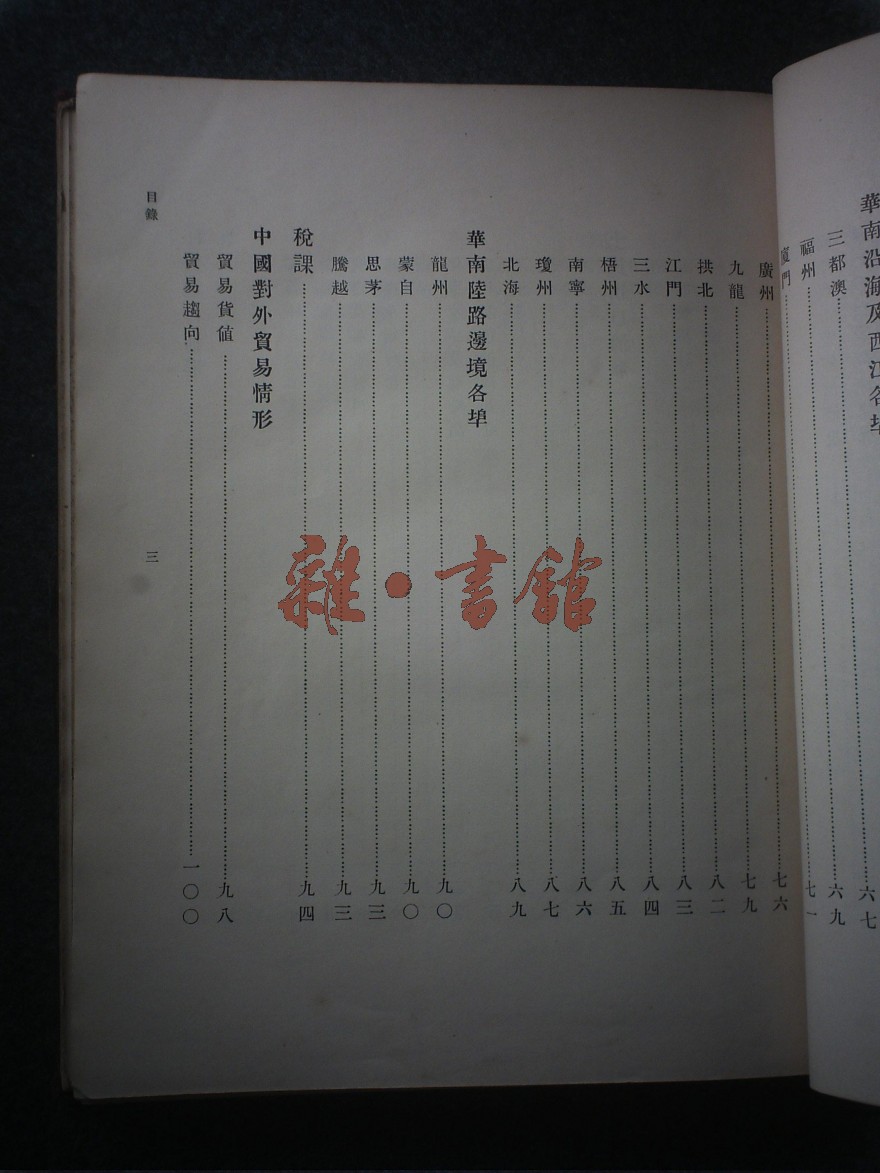 華南沿海及西江各埠
三都澳……六七
福州……六九
廈門……七一
廣州……七六
九龍……七九
拱北……八二
江門……八三
三水……八四
梧州……八五
南寧……八六
瓊州……八七
北海……八九
華南陸路邊境各埠
龍州……九〇
蒙自……九〇
思茅……九三
騰越……九三
稅課……九四
中國對外貿易情形
貿易貨値……九八
貿易趨向……一〇〇
目錄
三
雜·書館